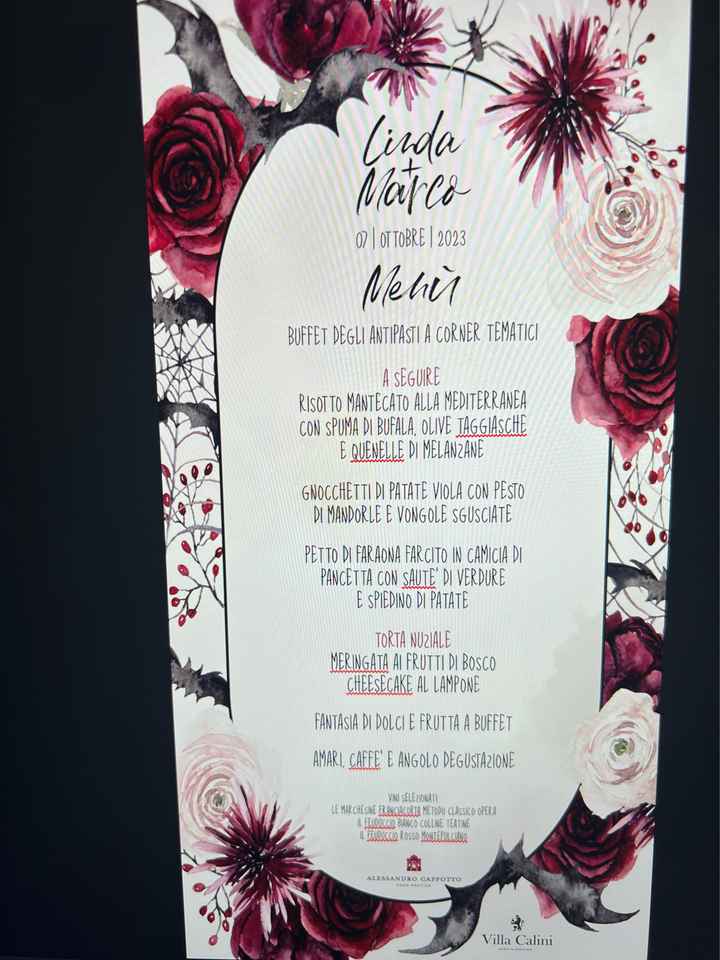 Linda
+
Marco
07 | OTTOBRE | 2023
Menù
BUFFET DEGLI ANTIPASTI A CORNER TEMATICI
A SEGUIRE
RISOTTO MANTECATO ALLA MEDITERRANEA
CON SPUMA DI BUFALA, OLIVE TAGGIASCHE
E QUENELLE DI MELANZANE
GNOCCHETTI DI PATATE VIOLA CON PESTO
DI MANDORLE E VONGOLE SGUSCIATE
PETTO DI FARAONA FARCITO IN CAMICIA DI
PANCETTA CON SAUTE' DI VERDURE
E SPIEDINO DI PATATE
TORTA NUZIALE
MERINGATA AI FRUTTI DI BOSCO
CHEESECAKE AL LAMPONE
FANTASIA DI DOLCI E FRUTTA A BUFFET
AMARI, CAFFE' E ANGOLO DEGUSTAZIONE
VINI SELEZIONATI
LE MARCHESINE FRANCIACORTA METODO CLASSICO OPERA
IL FEUDUCCIO BIANCO COLLINE TEATINE
IL FEUDUCCIO ROSSO MONTEPULCIANO
ALESSANDRO CAPPOTTO
Villa Calini